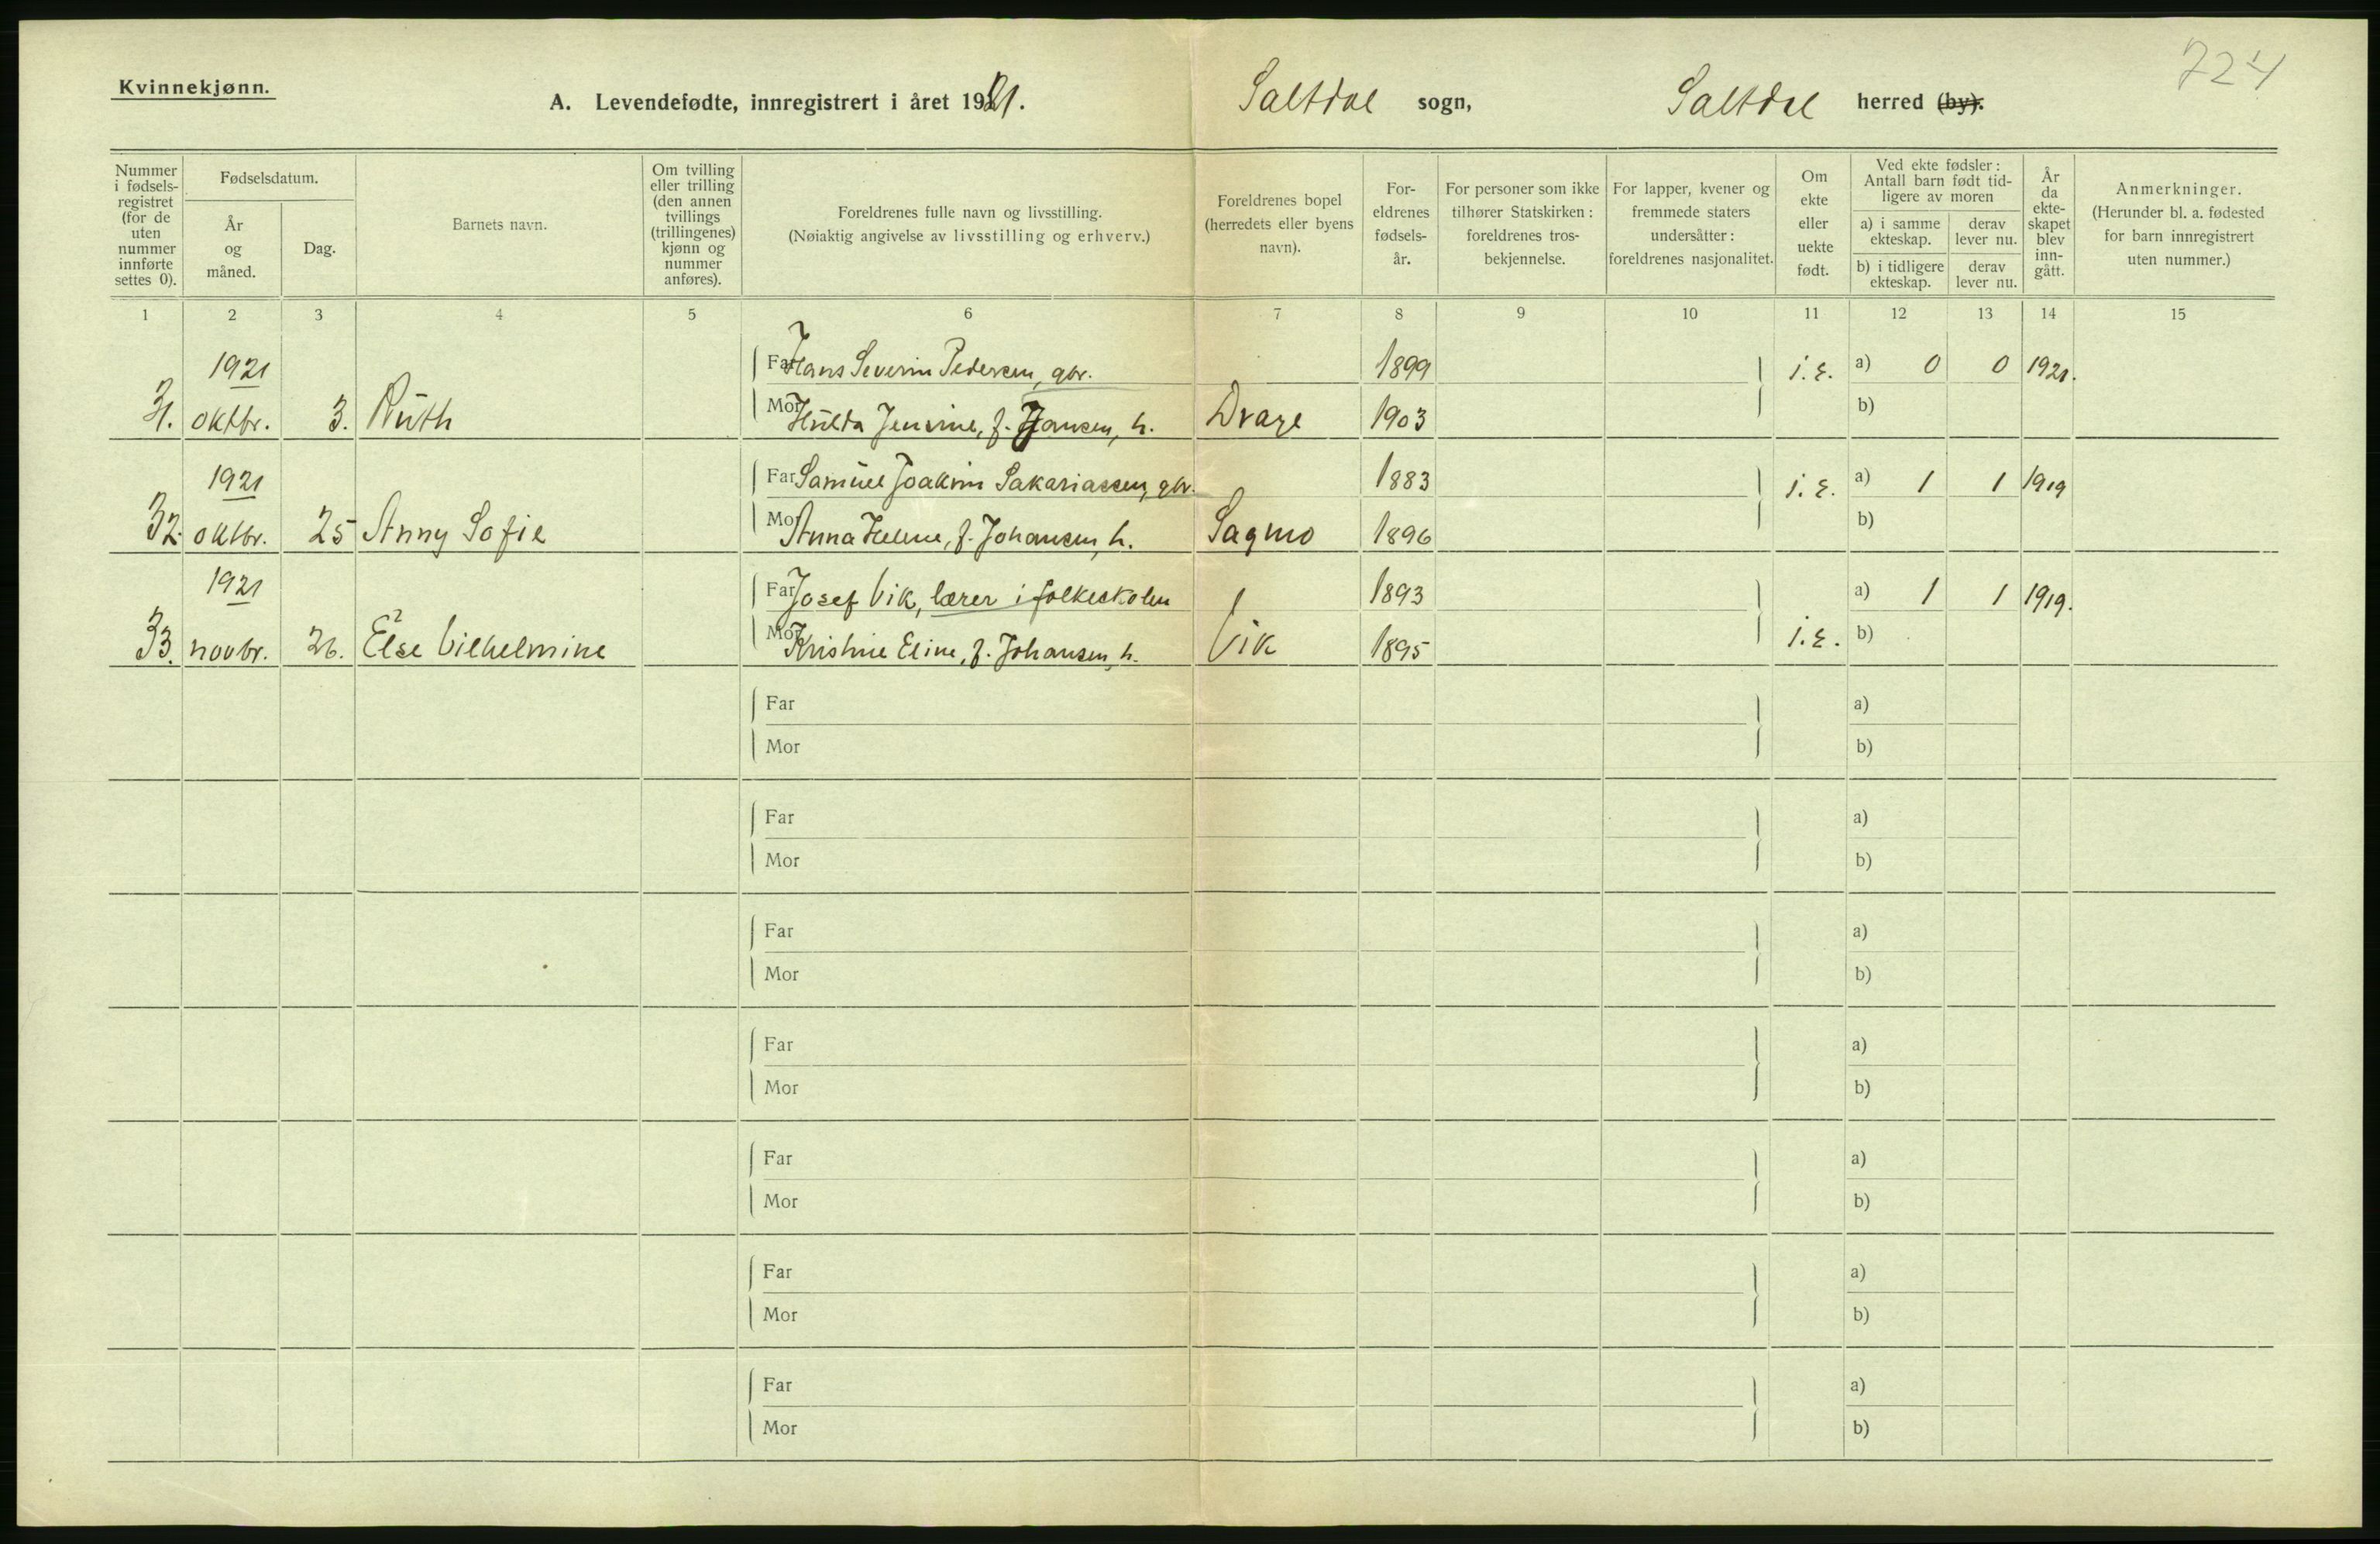 724
Kvinnekjønn.
A. Levendefødte, innregistrert i året 1921. Saltdal sogn, Saltdal herred (by).
Nummer i fødsels-registret (for de uten nummer innførte settes 0).
Fødselsdatum.
År og måned.
Dag.
Barnets navn.
Om tvilling eller trilling (den annen tvillings (trillingenes) kjønn og nummer anføres).
Foreldrenes fulle navn og livsstilling.
(Nøiaktig angivelse av livsstilling og erhverv.)
Foreldrenes bopel (herredets eller byens navn).
For-eldrenes fødsels-år.
For personer som ikke tilhører Statskirken: foreldrenes tros-bekjennelse.
For lapper, kvener og fremmede staters undersåtter: foreldrenes nasjonalitet.
Om ekte eller uekte født.
Ved ekte fødsler: Antall barn født tid-ligere av moren
a) i samme ekteskap. derav lever nu.
b) i tidligere ekteskap. derav lever nu.
År da ekte-skapet blev inn-gått.
Anmerkninger.
(Herunder bl. a. fødested for barn innregistrert uten nummer.)
1 2 3 4 5 6 7 8 9 10 11 12 13 14 15
1921 Far Hans Severin Pedersen, gbr. 1899 i. e. a) 0 0 1921.
31. oktbr. 3. Ruth Mor Hulda Jensine, f. Hansen, h. Drage 1903 b)
1921 Far Samuel Joakim Sakariassen, gbr. 1883 i. e. a) 1 1 1919
32. oktbr. 25 Anny Sofie Mor Anna Helene, f. Johansen, h. Sagmo 1896 b)
1921 Far Josef Vik, lærer i folkeskolen 1893 a) 1 1 1919.
33. novbr. 26. Else Vilhelmine Mor Kristine Eline, f. Johansen, h. Vik 1895 i. e. b)
Far a)
Mor b)
Far a)
Mor b)
Far a)
Mor b)
Far a)
Mor b)
Far a)
Mor b)
Far a)
Mor b)
Far a)
Mor b)